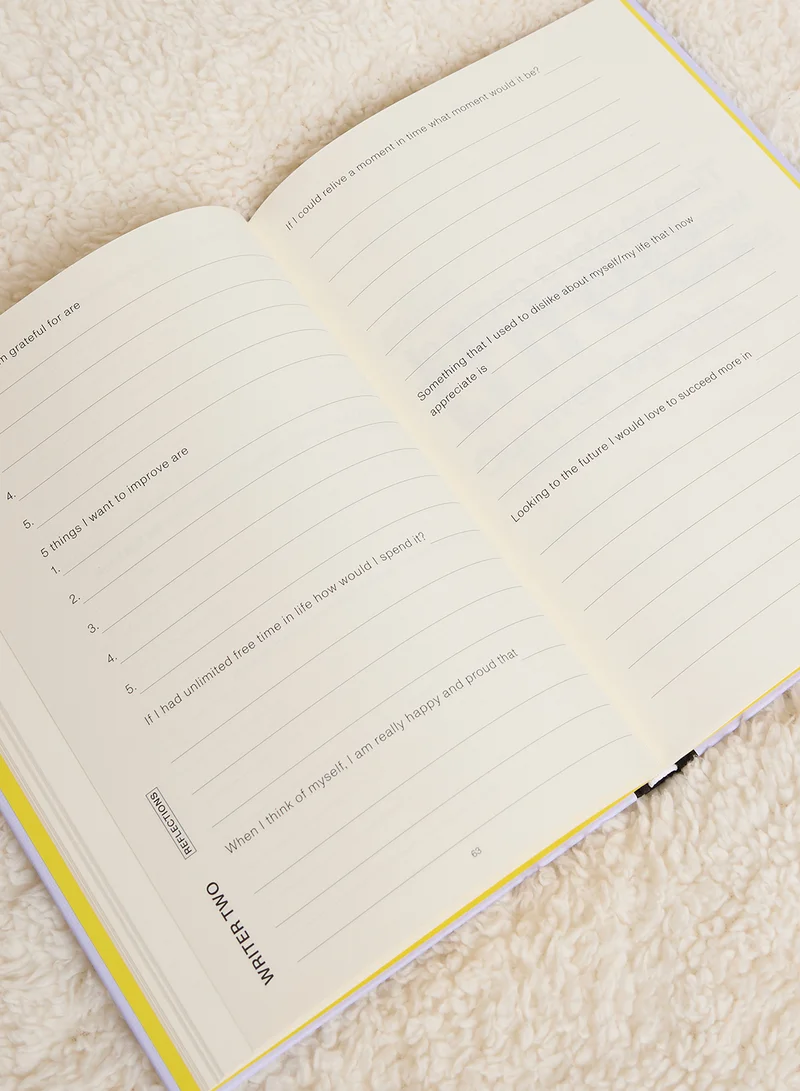 grateful for are
4.
5.
5 things I want to improve are
1.
2.
3.
4.
5.
If I had unlimited free time in life how would I spend it?
When I think of myself, I am really happy and proud that
REFLECTIONS
WRITER TWO
63
If I could relive a moment in time what moment would it be?
Something that I used to dislike about myself/my life that I now
appreciate is
Looking to the future I would love to succeed more in